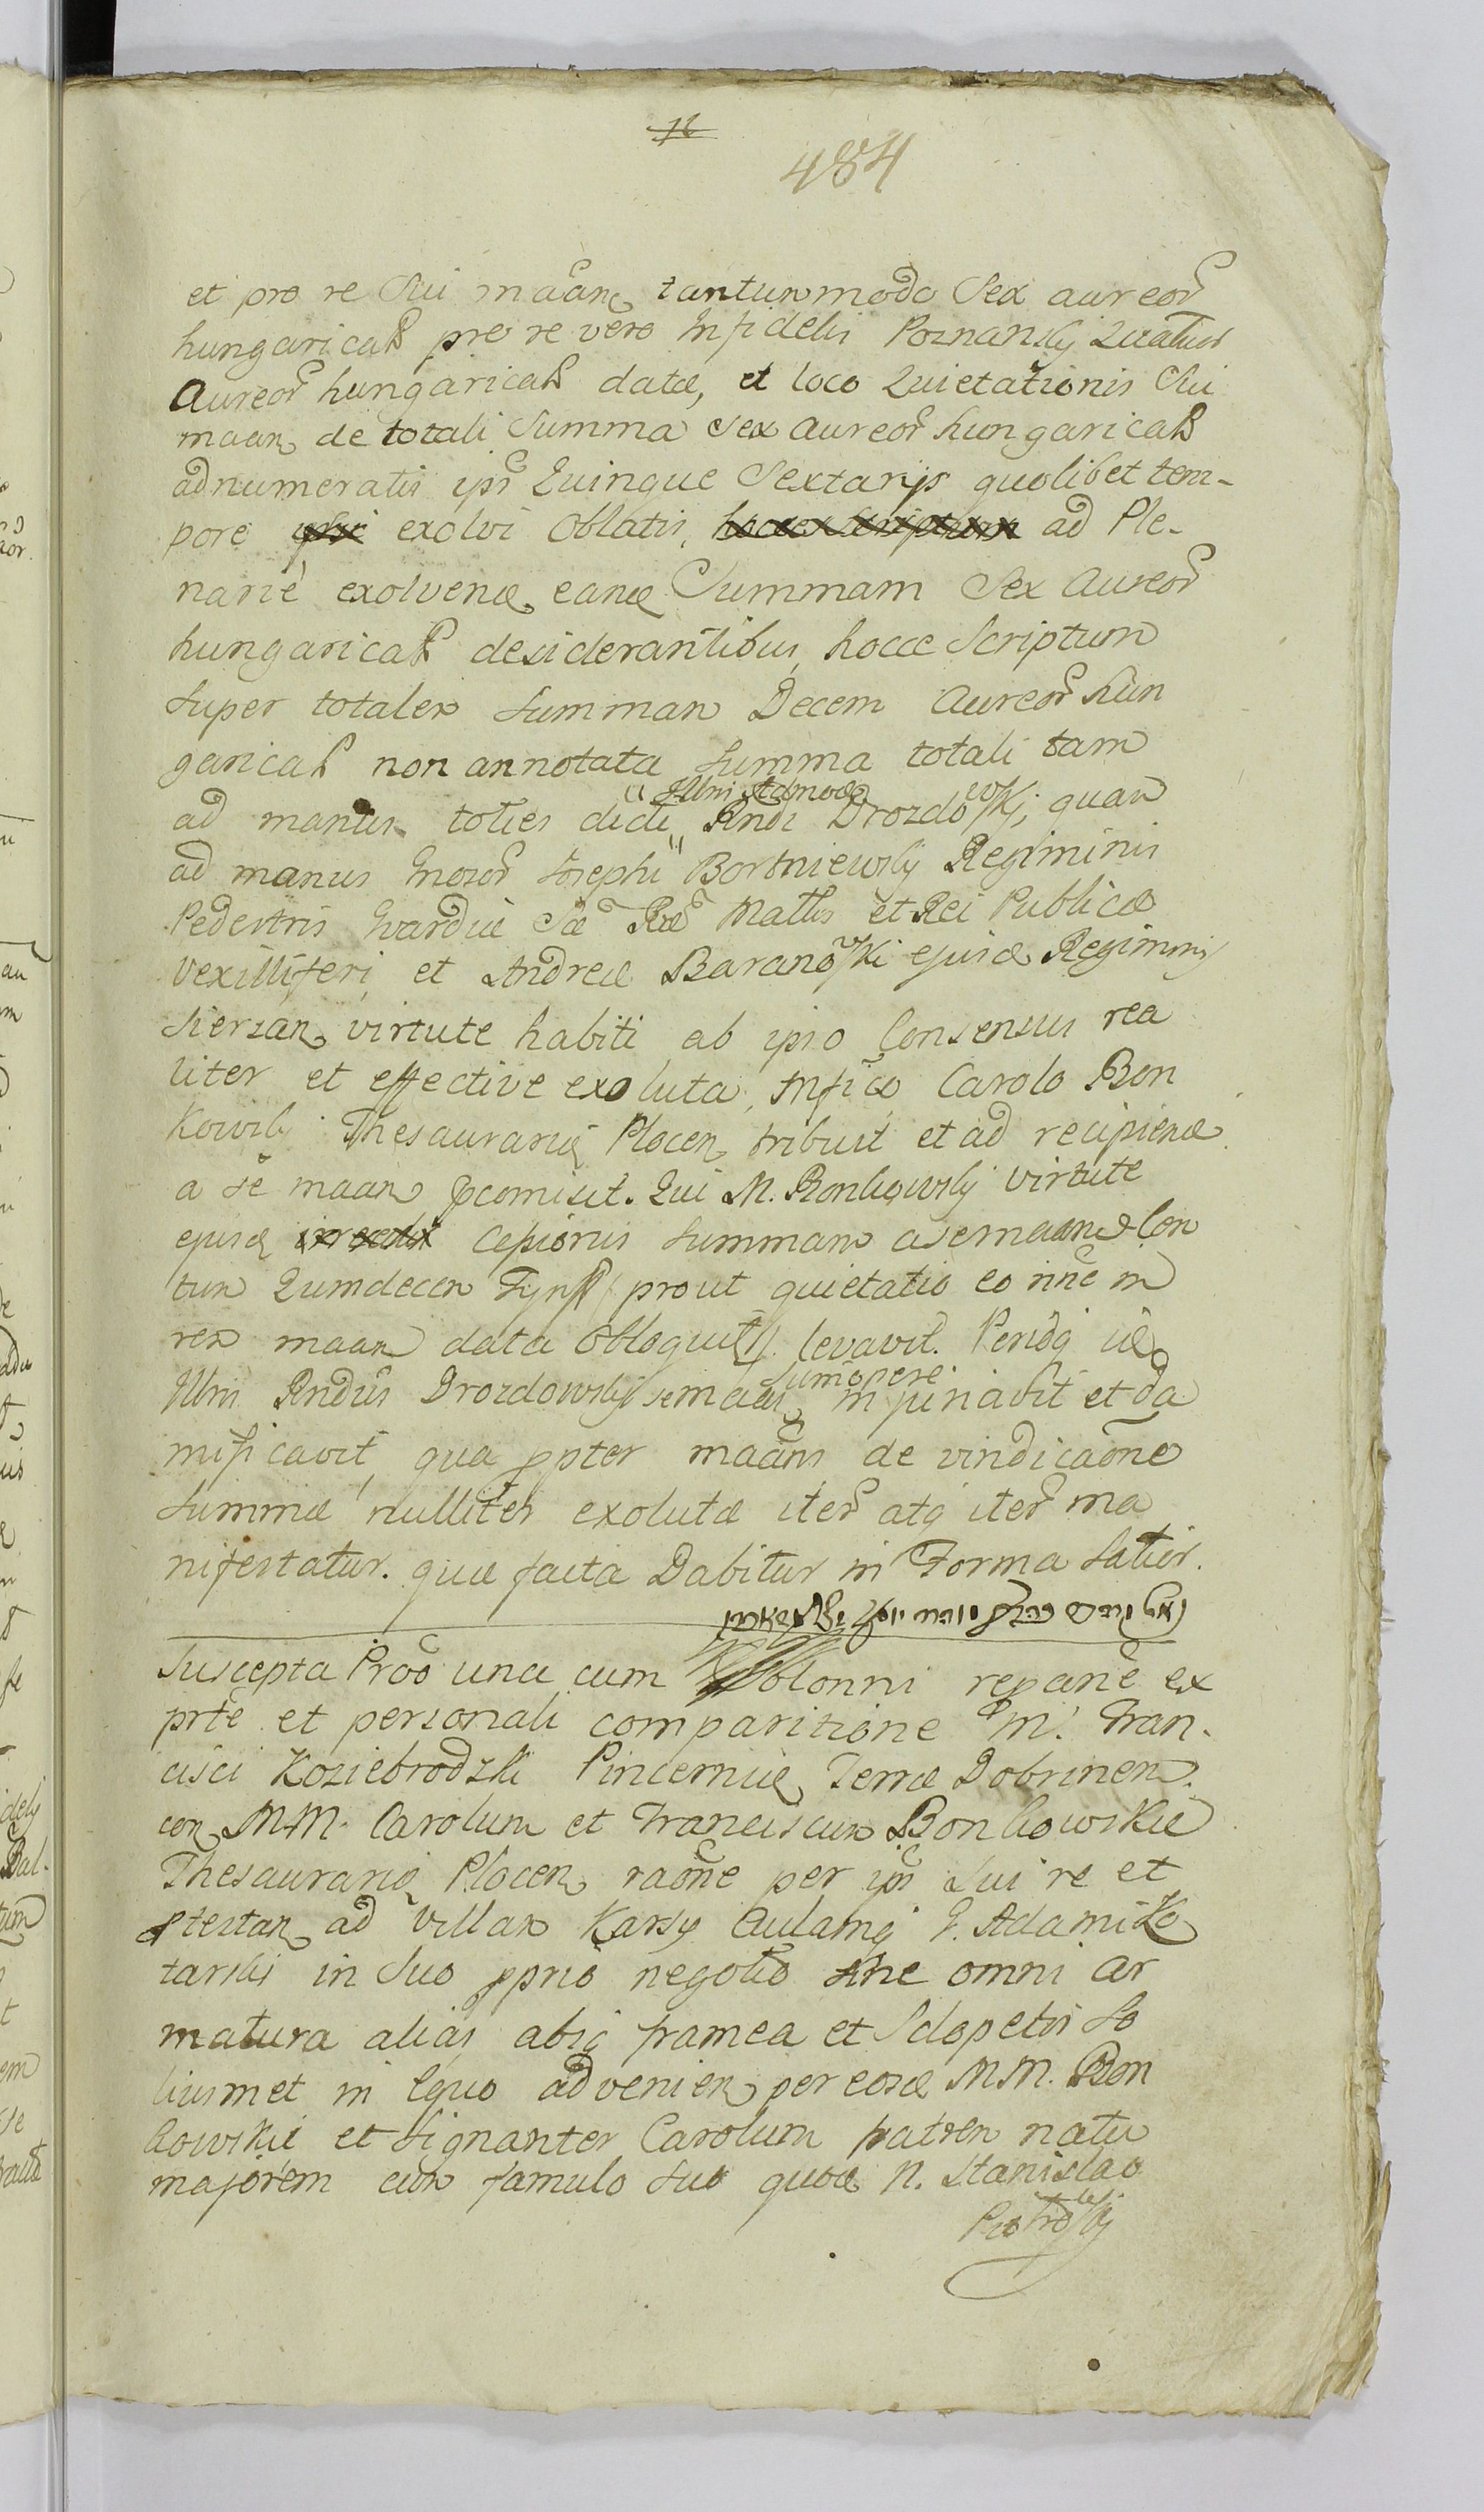 484
et pro re Sui maãn tantummodo Sex aureor
hungarical pro re vero Infidelis Poznansky Quatuor
Aureor hungarical datæ, et loco Quietationis Sui
maan de totali Summa Sex Aureor hungarical
adnumeratis ips Quinque Sextarijs quolibet tem-
pore exolvi Oblatis, ad Ple-
narie exolvend eand Summam Sex Aureor
hungarical desiderantibus, hocce Scriptum
super totalem Summam Decem Aureor hun
garical non annotata Summa totali tam
Illmi Admod
ad manus toties dicti Rndi Drozdowskj, quam
ad manus Gnosor Josephi Bortniewsky Regiminis
Pedestris Gvardiæ Sæ Ræ Mattis et Rei Publicæ
Vexilliferi et Andreæ Baranowski ejusd Regiminis
Sierzan virtute habiti ab ipso Consensus rea
liter et effective exoluta, Mfico Carolo Bon
kowsky Thesaurario Plocen tribuit et ad recipiend
a se maan comisit. Qui M. Bonkowsky virtute
ejusd Cessionis Summam a se maand Cen
tum Quindecem Tynf prout quietatio eo nne in
rem maan data Obloquit levavit. Peridq id
Sumopere
Illmi Rndus Drozdowsky se maan injuriavit et da
mificavit, qua ppter maans de vindicaõne
Summæ nulliter exolutæ iter atq iter ma
nifestatur. quæ facta Dabitur in Forma Latior.
Suscepta Proõ una cum Oblonni repane ex
prte et personali comparitione M. Fran-
cisci Koziebrodzki Pincernæ Terræ Dobrinen
con MM. Carolum et Franciscum Bonkowskie
Thesaurario Plocen raõne per ips Sui re et
ptestan ad Villam Karsy Aulamq G. Adami Ko
tarski in Suo pprio negotio sine omni ar
matura alias absq framea et Sclopetis So
liusmet in Equo advenien per eosd MM. Bon
kowskie et Signanter Carolum fratrem natu
majorem cum famulo Suo quod N. Stanislao
Piotrowskj